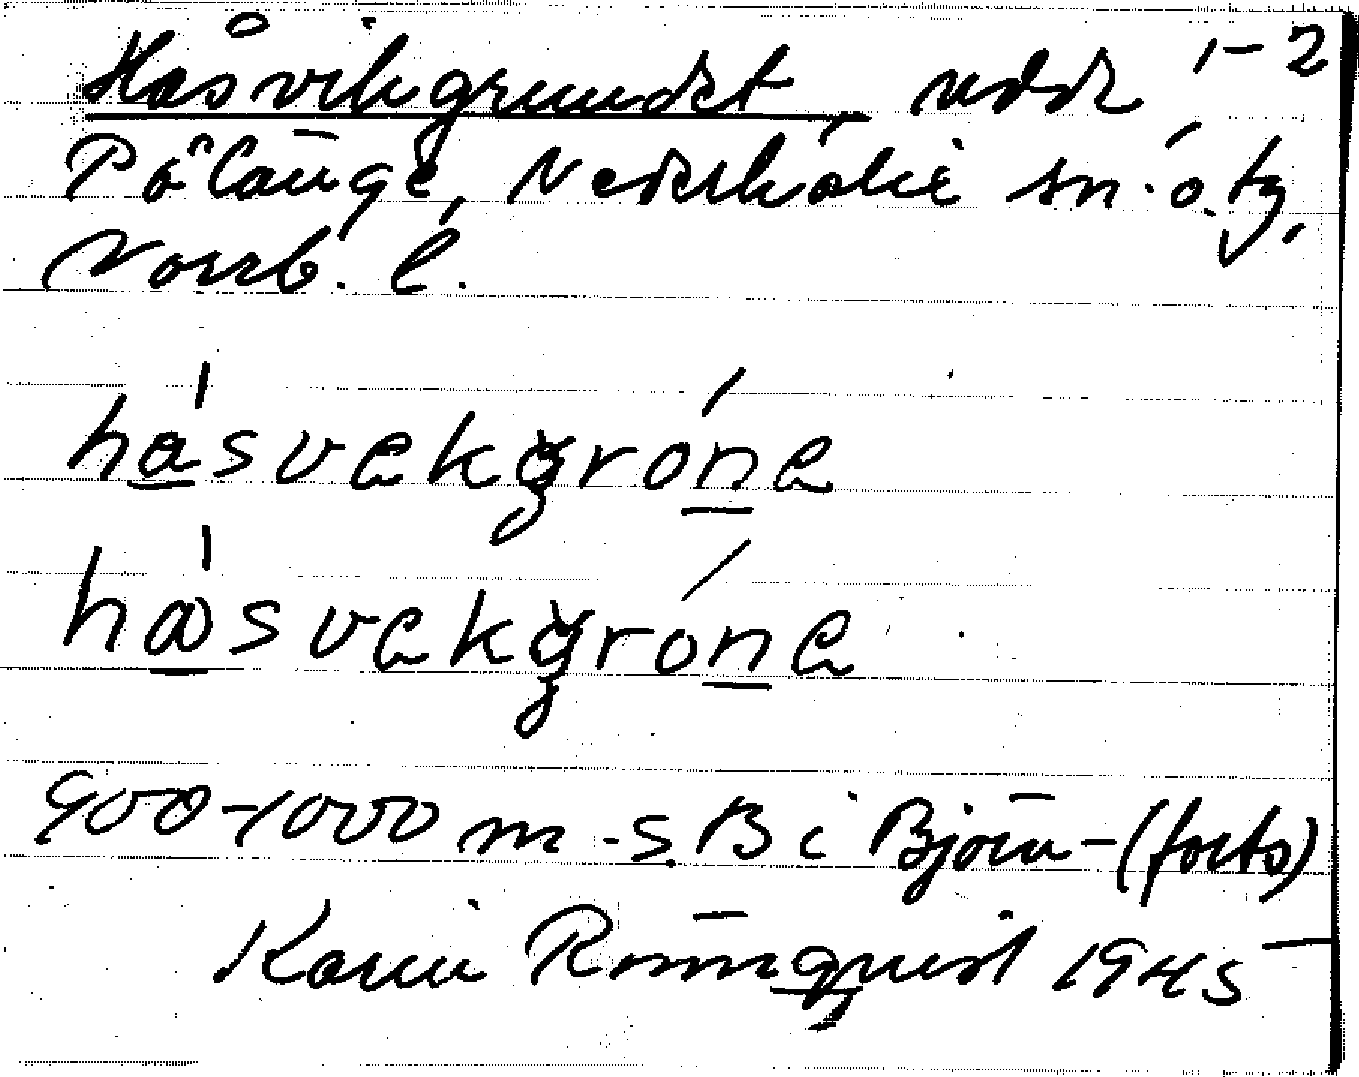 Håsvikgrundet, udde 1-2
Pålänge, Nederkalix sn. o. tg,
Norrb. l.
hásvekgróne
hásvekgróne
900-1000 m. S. B i Björn- (forts)
Karin Rönnquist 1945